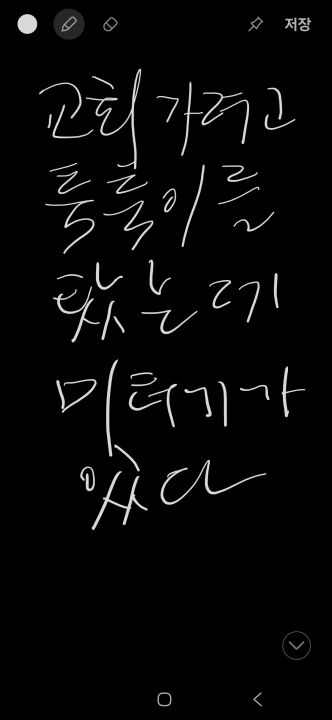 저장
교회 가려고
툭툭이를
탔는데
미터기가
있다